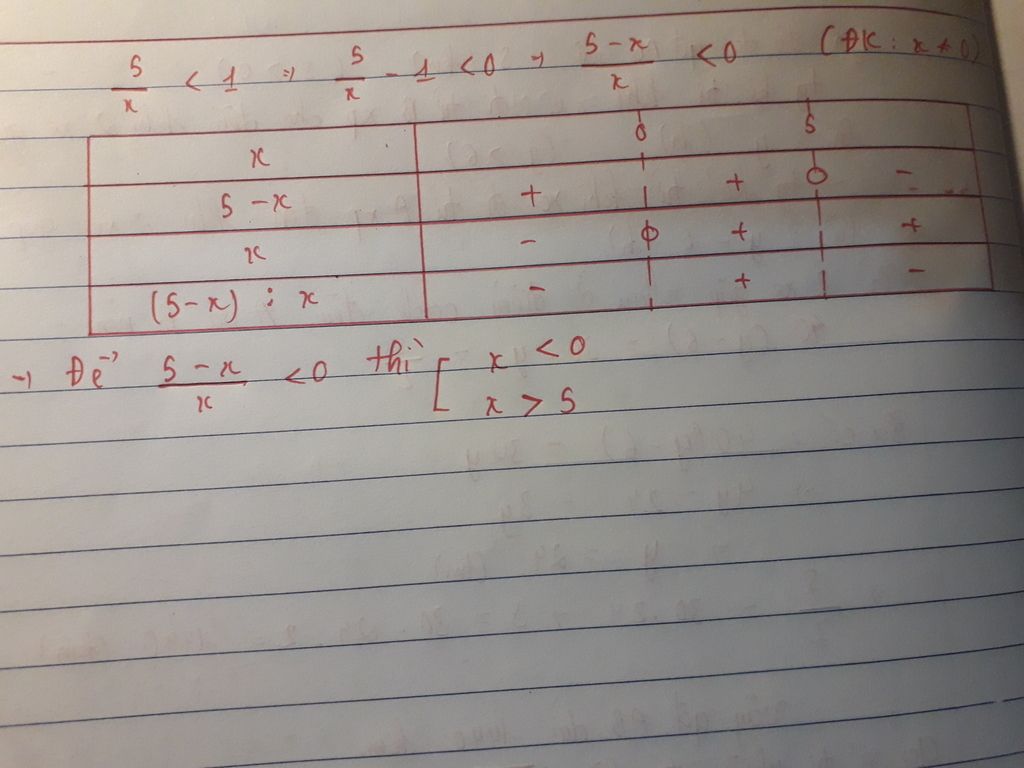 5/x < 1 => 5/x - 1 < 0 → (5-x)/x < 0 (ĐK: x ≠ 0)
x 0 5
5-x + | + 0 -
x - 0 + | +
(5-x) : x - | + | -
→ Để (5-x)/x < 0 thì [ x < 0
x > 5